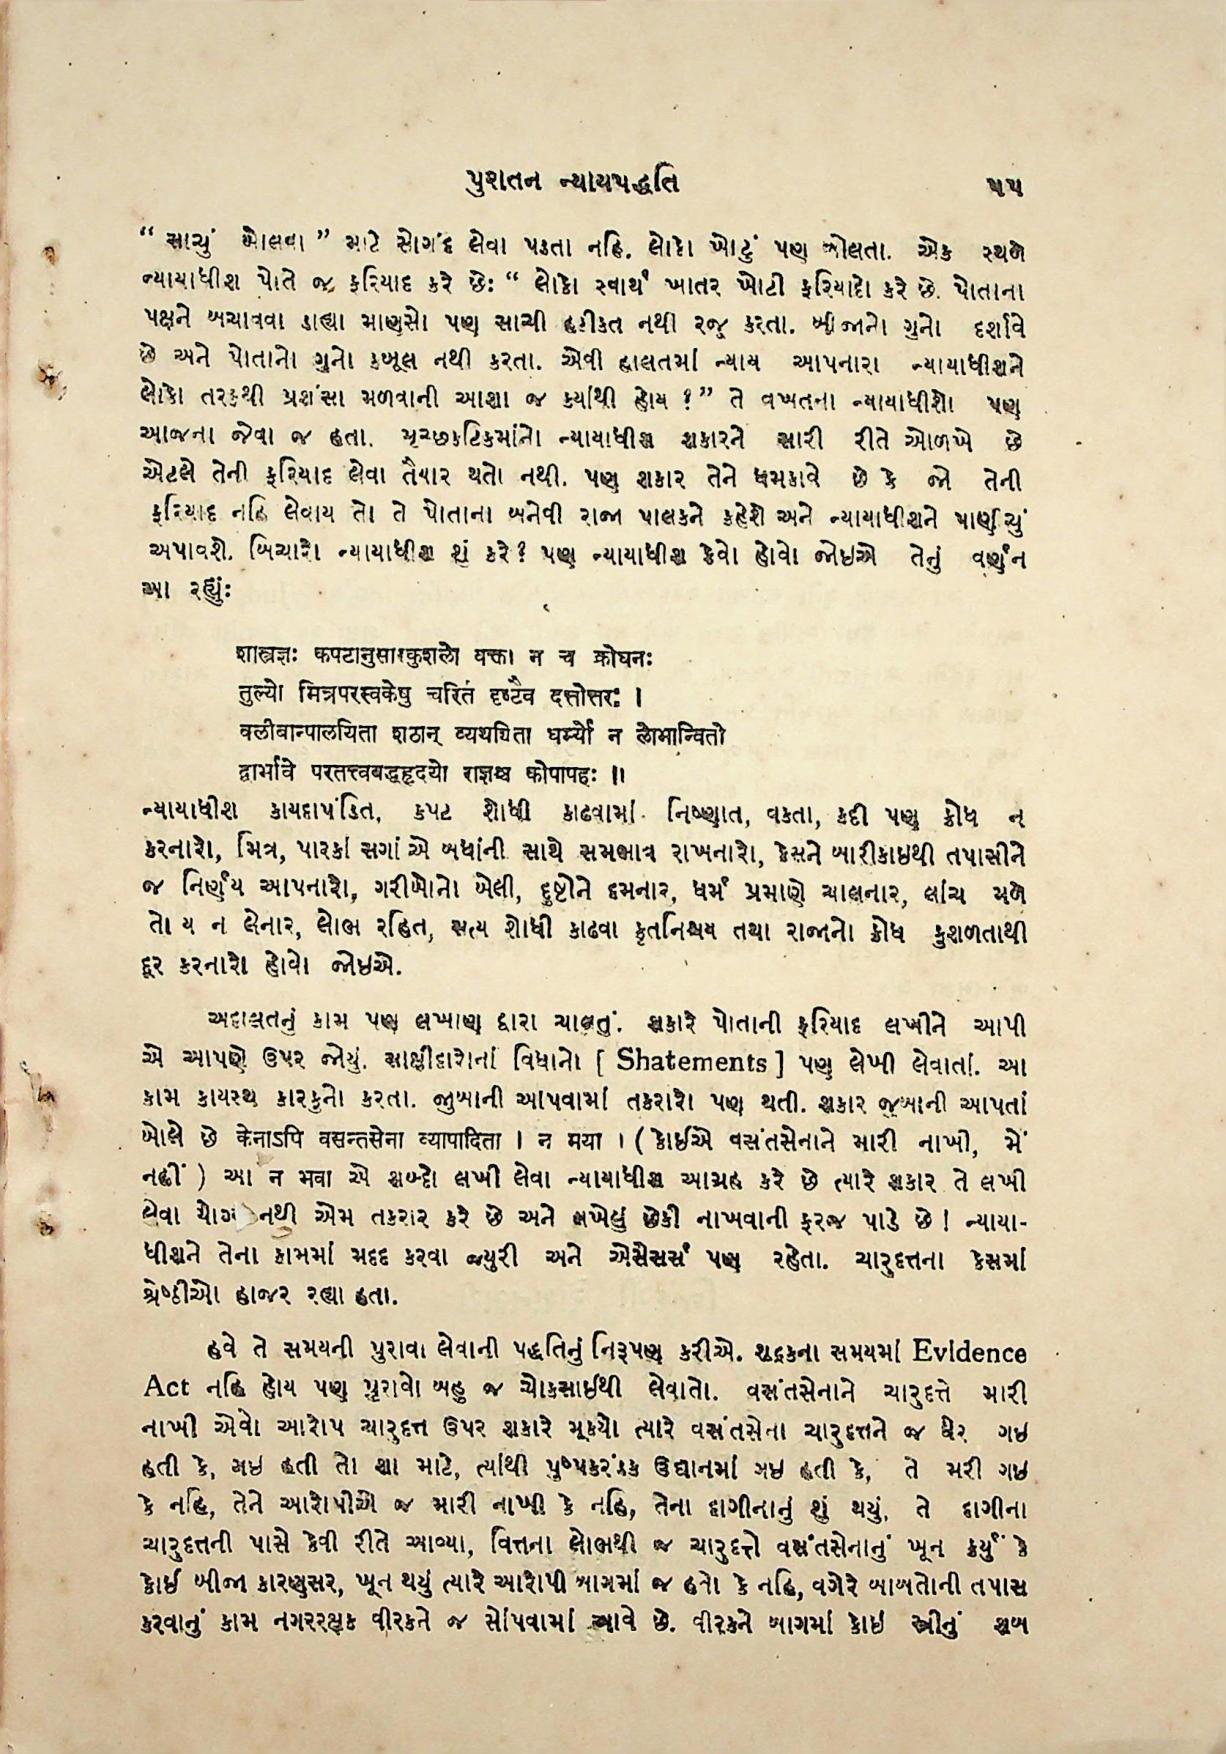 પુરાતન ન્યાયપદ્ધતિ ૫૫
“ સાચું બોલવા ” માટે સોગંદ લેવા પડતા નહિ. લોકો ખોટું પણ બોલતા. એક સ્થળે
ન્યાયાધીશ પોતે જ ફરિયાદ કરે છેઃ “ લોકો સ્વાર્થ ખાતર ખોટી ફરિયાદો કરે છે. પોતાના
પક્ષને બચાવવા ડાહ્યા માણસો પણ સાચી હકીકત નથી રજૂ કરતા. બીજાનો ગુનો દર્શાવે
છે અને પોતાનો ગુનો કબૂલ નથી કરતા. એવી હાલતમાં ન્યાય આપનારા ન્યાયાધીશને
લોકો તરફથી પ્રશંસા મળવાની આશા જ કયાંથી હોય ? ” તે વખતના ન્યાયાધીશો પણ
આજના જેવા જ હતા. મૃચ્છકટિકમાંનો ન્યાયાધીશ શકારને સારી રીતે ઓળખે છે
એટલે તેની ફરિયાદ લેવા તૈયાર થતો નથી. પણ શકાર તેને ધમકાવે છે કે જો તેની
ફરિયાદ નહિ લેવાય તો તે પોતાના બનેવી રાજા પાલકને કહેશે અને ન્યાયાધીશને પાણીચું
અપાવશે. બિચારો ન્યાયાધીશ શું કરે ? પણ ન્યાયાધીશ કેવો હોવો જોઇએ તેનું વર્ણન
આ રહ્યુંઃ
શાસ્ત્રજ્ઞઃ कपटानुसारकुशलो वक्ता न च क्रोधनः
तुल्यो मित्रपरस्वकेषु चरितं दृष्टैव दत्तोत्तरः ।
क्लीबान्पालयिता शठान् व्यथयिता धर्म्यो न लोभान्वितो
द्वार्भावे परतत्त्वबद्धहृदयो राज्ञश्च कोपापहः ॥
ન્યાયાધીશ કાયદાપંડિત, કપટ શોધી કાઢવામાં નિષ્ણાત, વકતા, કદી પણ ક્રોધ ન
કરનારો, મિત્ર, પારકાં સગાં એ બધાંની સાથે સમભાવ રાખનારો, કેસને બારીકાઇથી તપાસીને
જ નિર્ણય આપનારો, ગરીબોનો બેલી, દુષ્ટોને દમનાર, ધર્મ પ્રમાણે ચાલનાર, લાંચ મળે
તો ય ન લેનાર, લોભ રહિત, સત્ય શોધી કાઢવા કૃતનિશ્ચય તથા રાજાનો ક્રોધ કુશળતાથી
દૂર કરનારો હોવો જોઇએ.
અદાલતનું કામ પણ લખાણ દ્વારા ચાલતું. શકારે પોતાની ફરિયાદ લખીને આપી
એ આપણે ઉપર જોયું. સાક્ષીદારોનાં વિધાનો [ Shatements ] પણ લેખી લેવાતાં. આ
કામ કાયસ્થ કારકુનો કરતા. જુબાની આપવામાં તકરારો પણ થતી. શકાર જુબાની આપતાં
બોલે છે केनाऽपि वसन्तसेना व्यापादिता । न मया । ( કોઈએ વસંતસેનાને મારી નાખી, મેં
નહીં ) આ न मया એ શબ્દો લખી લેવા ન્યાયાધીશ આગ્રહ કરે છે ત્યારે શકાર તે લખી
લેવા યોગ્ય નથી એમ તકરાર કરે છે અને લખેલું છેકી નાખવાની ફરજ પાડે છે ! ન્યાયા-
ધીશને તેના કામમાં મદદ કરવા જ્યુરી અને એસેસર્સ પણ રહેતા. ચારુદત્તના કેસમાં
શ્રેષ્ઠીઓ હાજર રહ્યા હતા.
હવે તે સમયની પુરાવા લેવાની પદ્ધતિનું નિરૂપણ કરીએ. શૂદ્રકના સમયમાં Evidence
Act નહિ હોય પણ પૂરાવો બહુ જ ચોકસાઇથી લેવાતો. વસંતસેનાને ચારુદત્તે મારી
નાખી એવો આરોપ ચારુદત્ત ઉપર શકારે મૂકયો ત્યારે વસંતસેના ચારુદત્તને જ ઘેર ગઇ
હતી કે, ગઇ હતી તો શા માટે, ત્યાંથી પુષ્પકરંડક ઉદ્યાનમાં ગઇ હતી કે, તે મરી ગઇ
કે નહિ, તેને આરોપીએ જ મારી નાખી કે નહિ, તેના દાગીનાનું શું થયું, તે દાગીના
ચારુદત્તની પાસે કેવી રીતે આવ્યા, વિત્તના લોભથી જ ચારુદત્તે વસંતસેનાનું ખૂન કર્યું કે
કોઈ બીજા કારણસર, ખૂન થયું ત્યારે આરોપી બાગમાં જ હતો કે નહિ, વગેરે બાબતોની તપાસ
કરવાનું કામ નગરરક્ષક વીરકને જ સોંપવામાં આવે છે. વીરકને બાગમાં કોઇ સ્ત્રીનું શબ